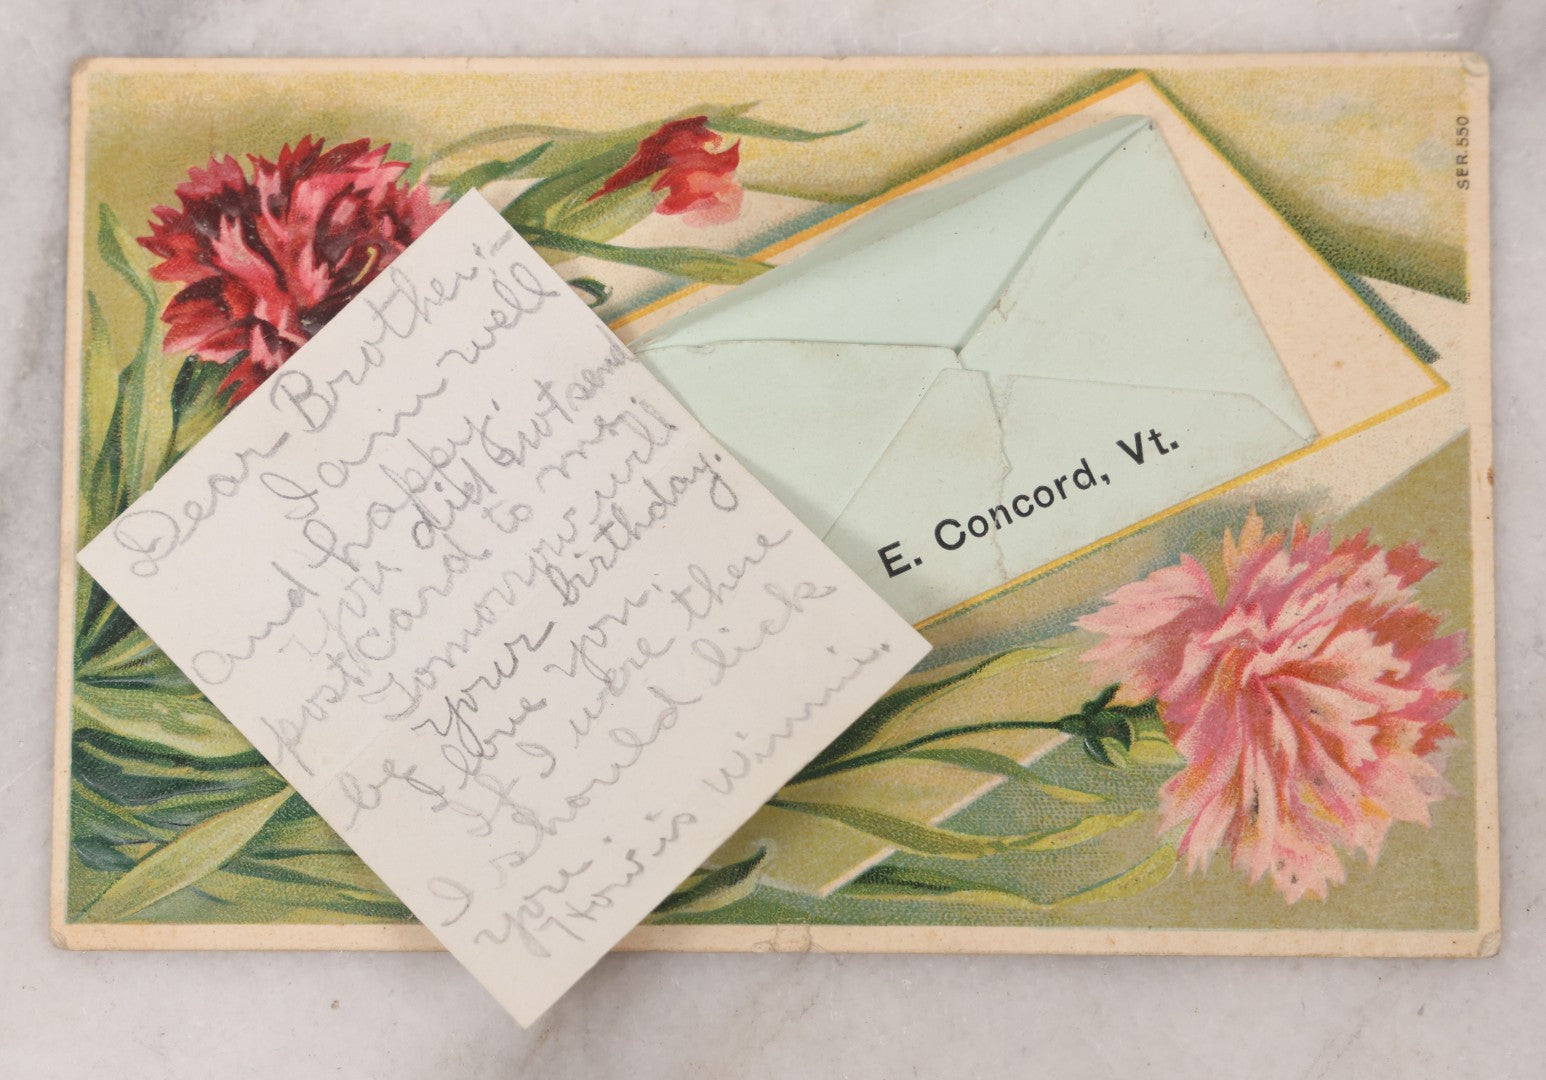 Dear Brother;—
I am well
and happy.
You did not send
post card to me.
Tomorrow will
be your birthday.
I love you.
If I were there
I should lick
you.
How is Winni.
E. Concord, Vt.
SER. 550